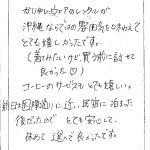 かりゆしウェアのレンタルが
沖縄ならではの雰囲気を味わえて
とても嬉しかったです。
(着てみたいけど、買う前に試せて
良かった)
コーヒーのサービスもとても嬉しい。
前日は国際通りに近い民宿に泊まった
後だったので とても安心して
休めて 選んで良かったです。